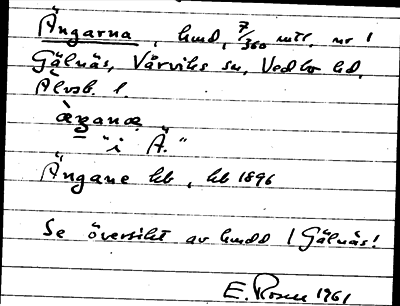 Ängarna, hmd, 7/360 mtl. nr 1
Gälnäs, Vårviks sn, Vedbo hd,
Älvsb. l.
æŋana
"i Ä."
Ängane hb, hb 1896
Se översikt av hmdd / Gälnäs!
E. Rosen 1961